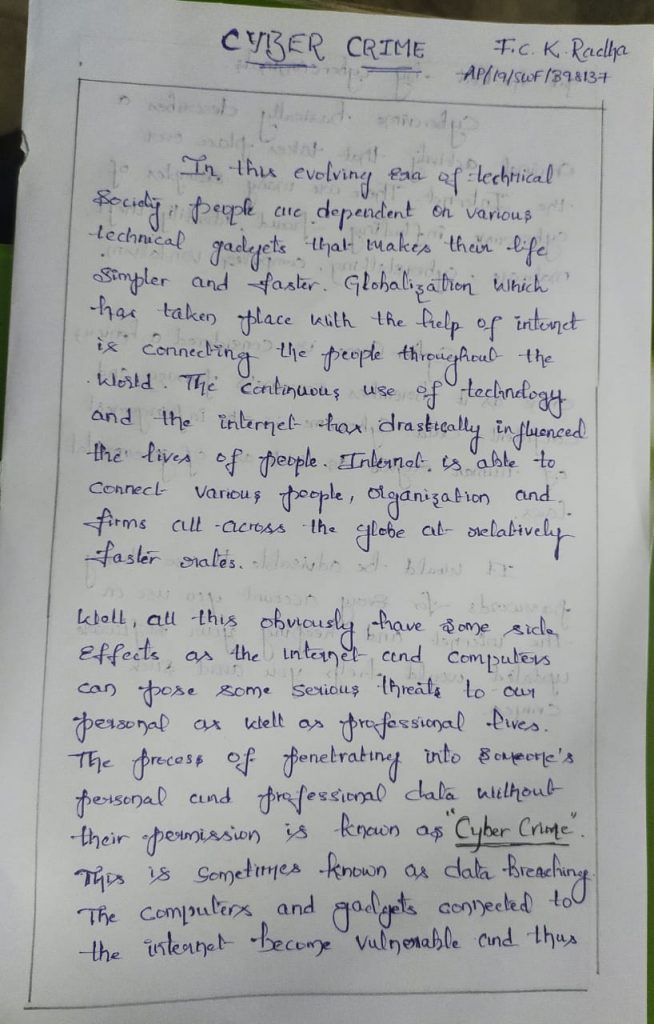 CYBER CRIME
F.C. K. Radha
AP/19/SWF/398137
In this evolving era of technical
Society, people are dependent on various
technical gadgets that makes their life
Simpler and faster. Globalization which
has taken place with the help of internet
is connecting the people throughout the
World. The continuous use of technology
and the internet has drastically influenced
the lives of people. Internet is able to
connect various people, organization and
firms all across the globe at relatively
faster rates.
Well, all this obviously have some side
Effects as the internet and computers
can pose some serious threats to our
personal as well as professional lives.
The process of penetrating into Someone's
personal and professional data without
their permission is known as "Cyber Crime".
This is Sometimes known as data breaching.
The computers and gadgets connected to
the internet become vulnerable and thus